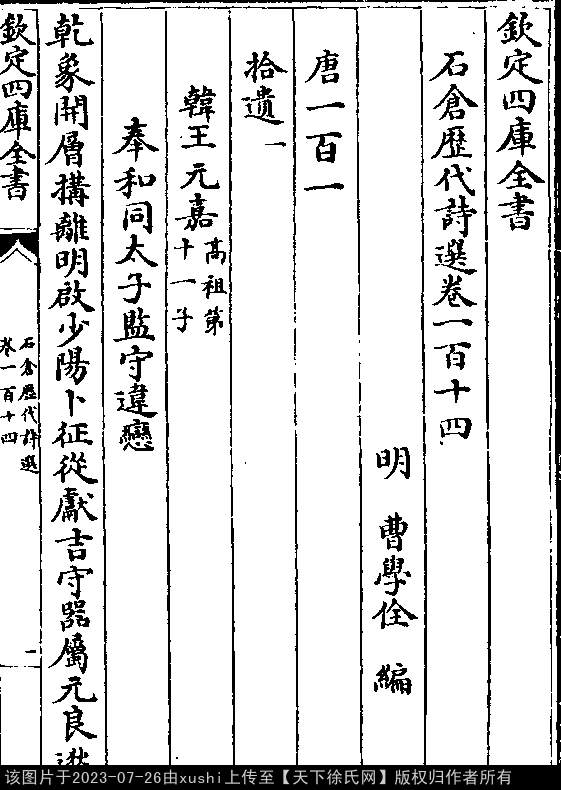 欽定四庫全書
石倉歷代詩選卷一百十四
明 曹學佺 編
唐一百一
拾遺一
韓王元嘉 高祖第十一子
奉和同太子監守違戀
乾象開層搆離明啟少陽卜征從獻吉守器屬元良
欽定四庫全書
石倉歷代詩選
卷一百十四
一
该图片于2023-07-26由xushi上传至【天下徐氏网】版权归作者所有